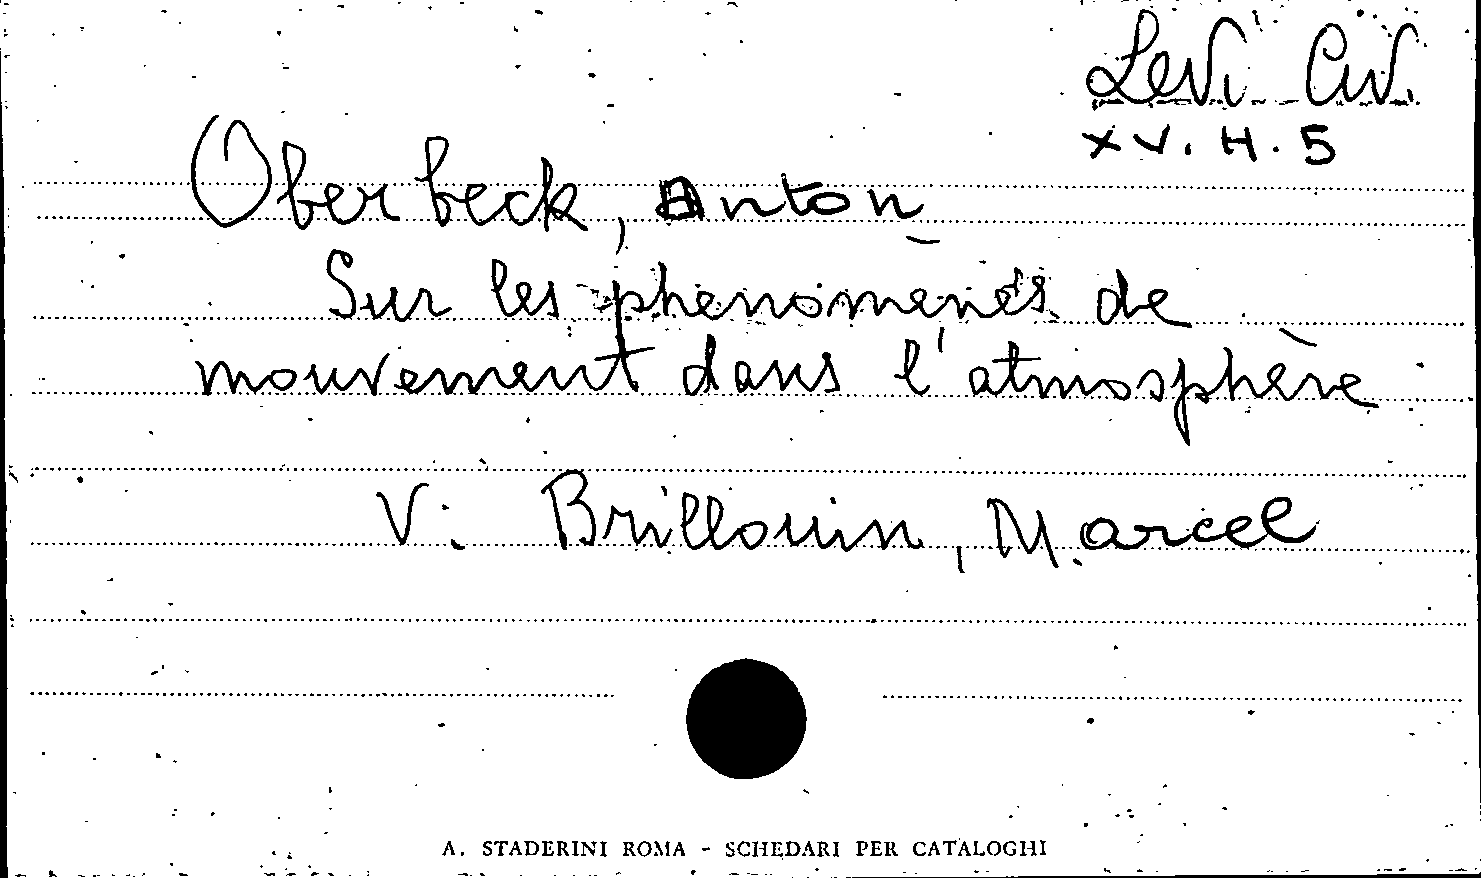 Levi Civ.
XV. H. 5
Oberbeck, Anton
Sur les phenomenès de
mouvement dans l'atmosphère
V. Brillouin, Marcel
A. STADERINI ROMA - SCHEDARI PER CATALOGHI